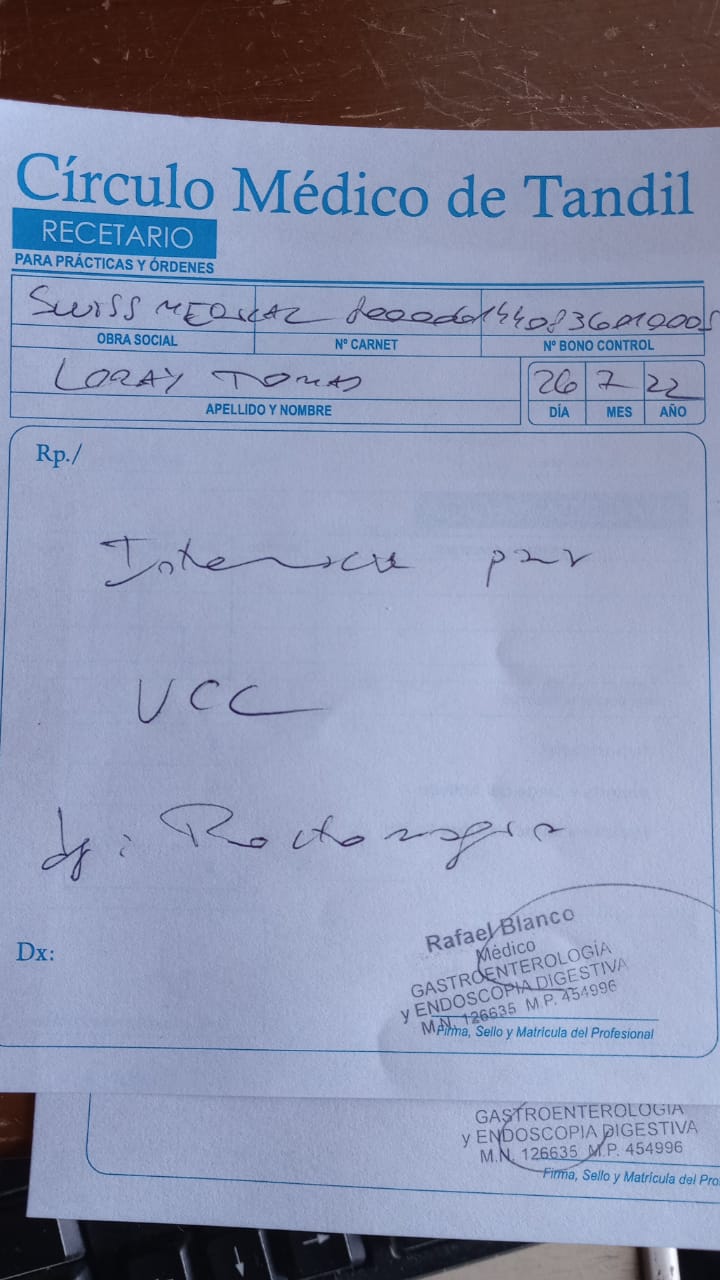 Círculo Médico de Tandil
RECETARIO
PARA PRÁCTICAS Y ÓRDENES
SWISS MEDICAL
OBRA SOCIAL Nº CARNET Nº BONO CONTROL
LORAY TOMAS 26 7 22
APELLIDO Y NOMBRE DÍA MES AÑO
Rp./
par
VCC
dg:
Rafael Blanco
Médico
GASTROENTEROLOGÍA
y ENDOSCOPIA DIGESTIVA
M.N. 126635 M.P. 454996
Dx:
Firma, Sello y Matricula del Profesional
GASTROENTEROLOGÍA
y ENDOSCOPIA DIGESTIVA
M.N. 126635 M.P. 454996
Firma, Sello y Matricula del Pro